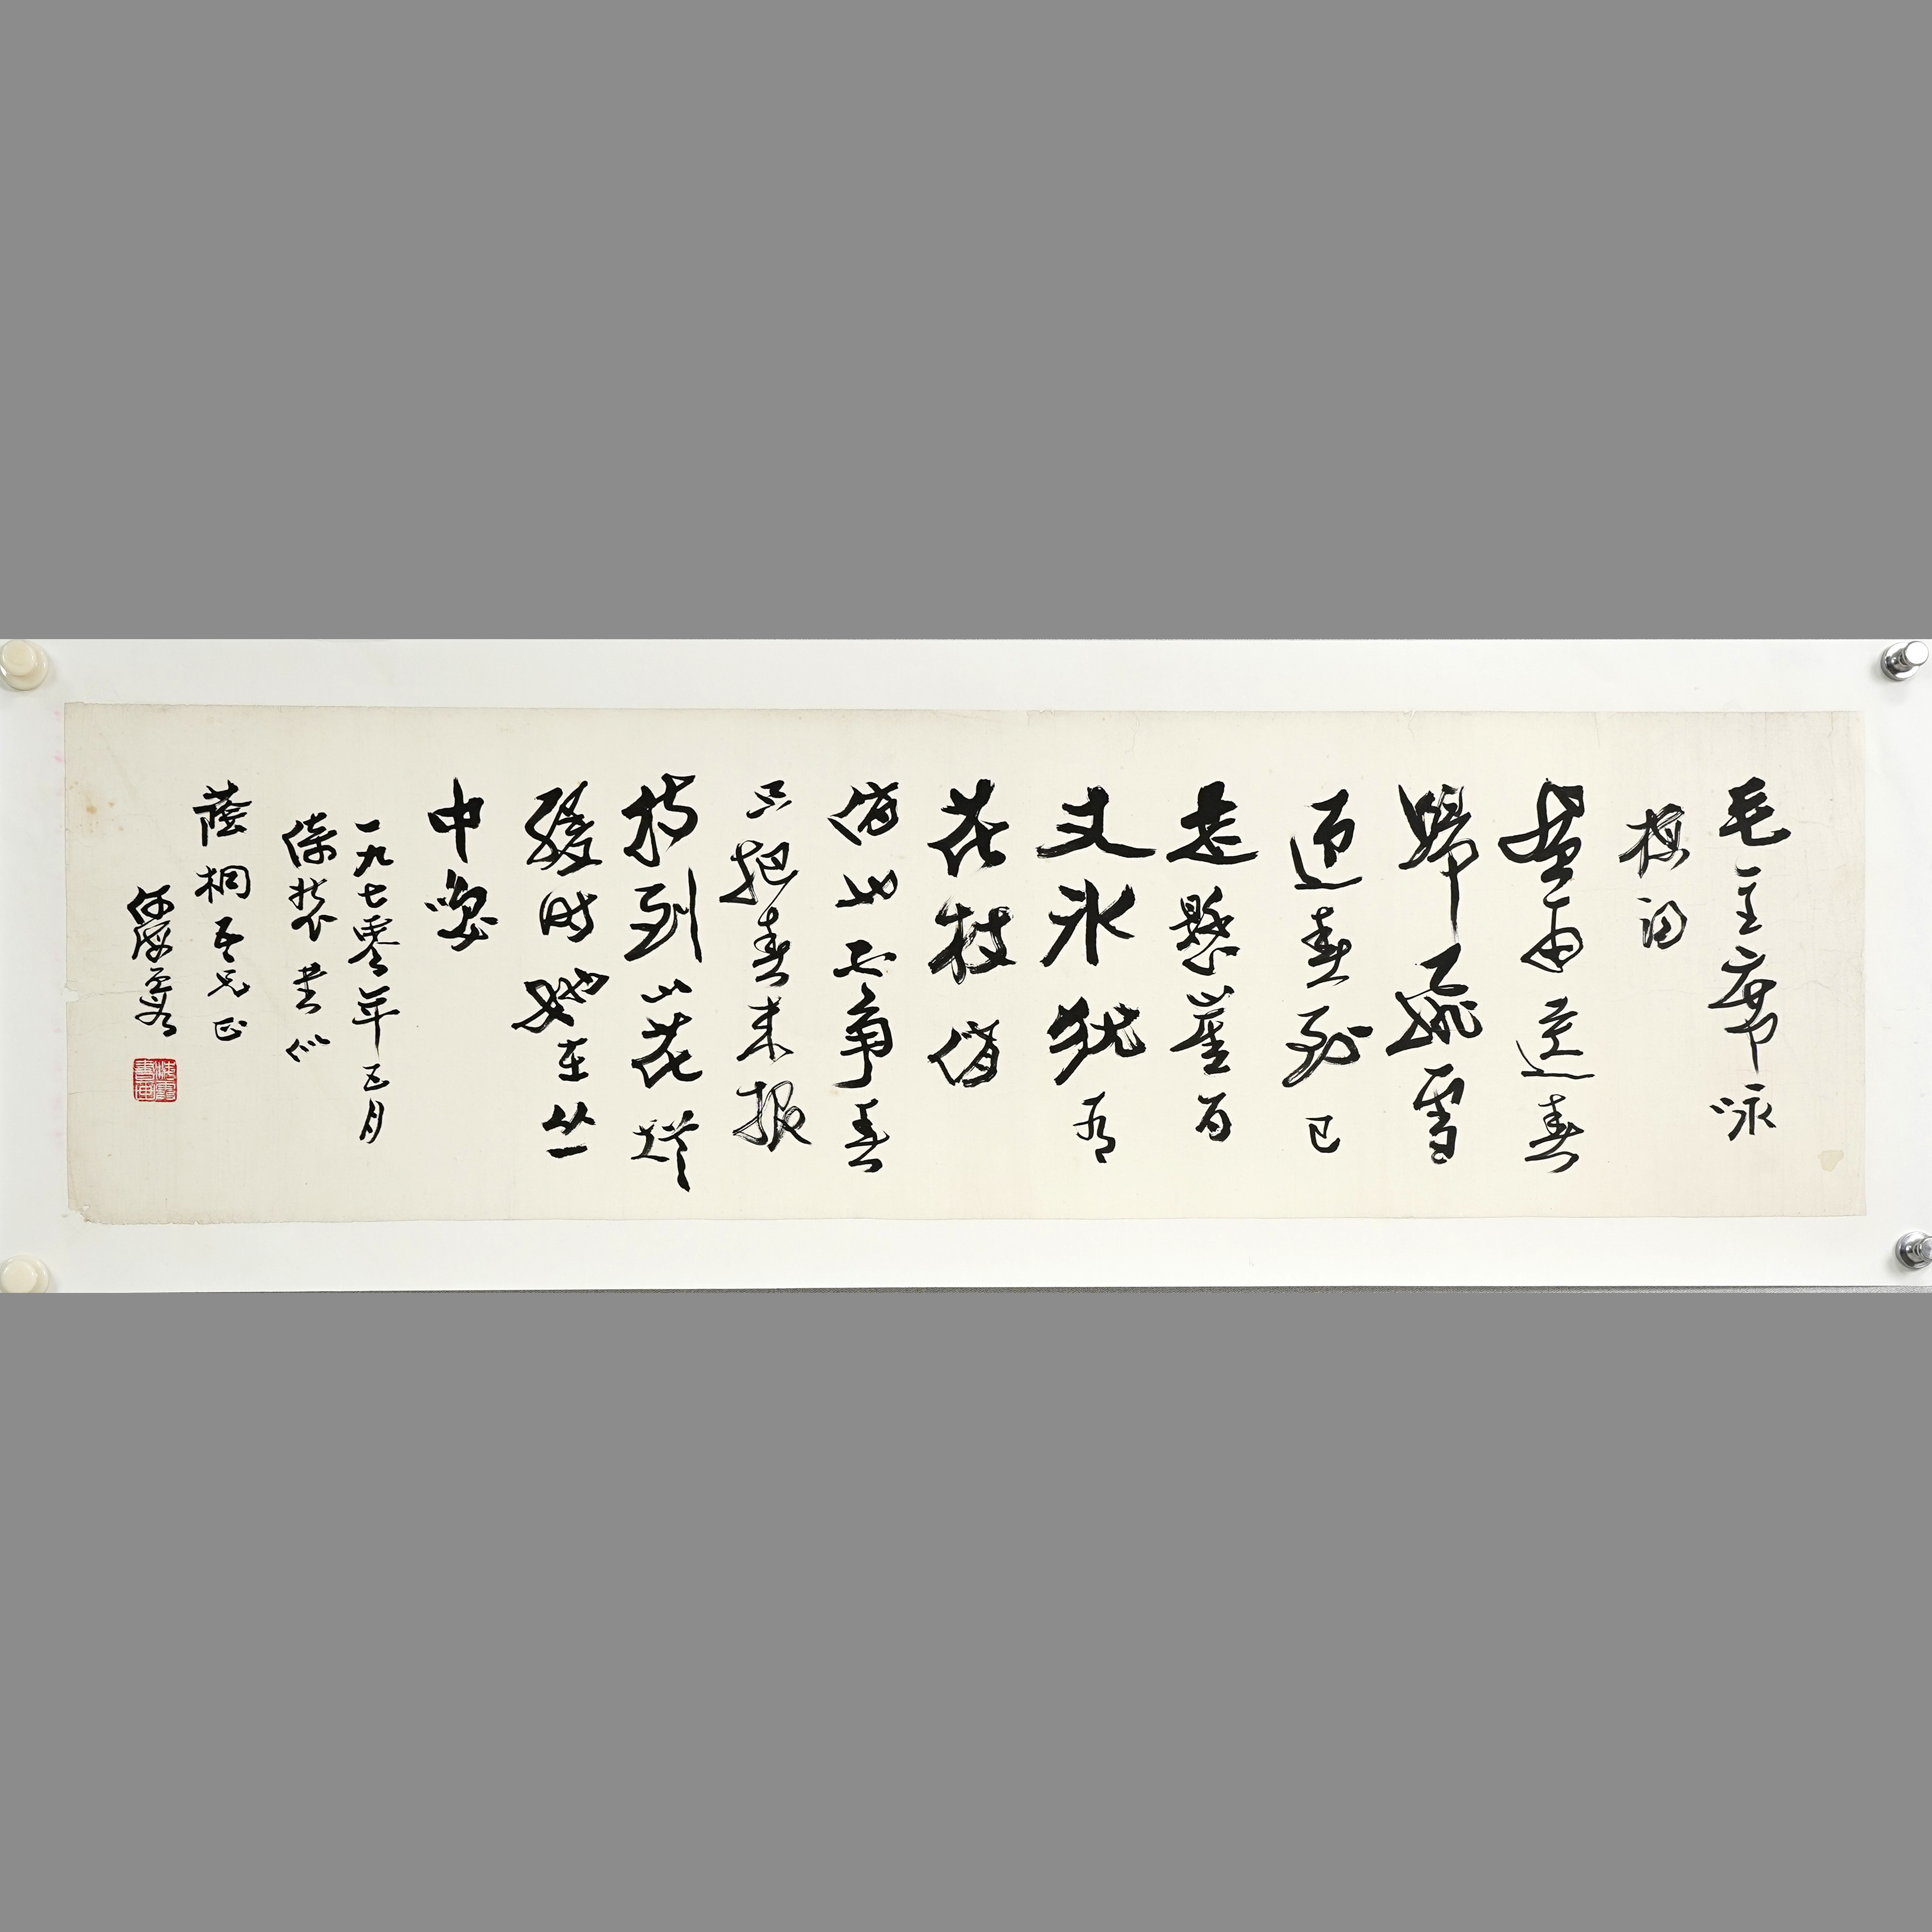 毛主席咏
梅词
風雨送春
歸飛雪
迎春到已
是懸崖百
丈冰犹有
花枝俏
俏也不争春
只把春来报
待到山花爛
漫时她在丛
中笑
一九七零年五月
書似
蔭桐吾兄正
何海霞